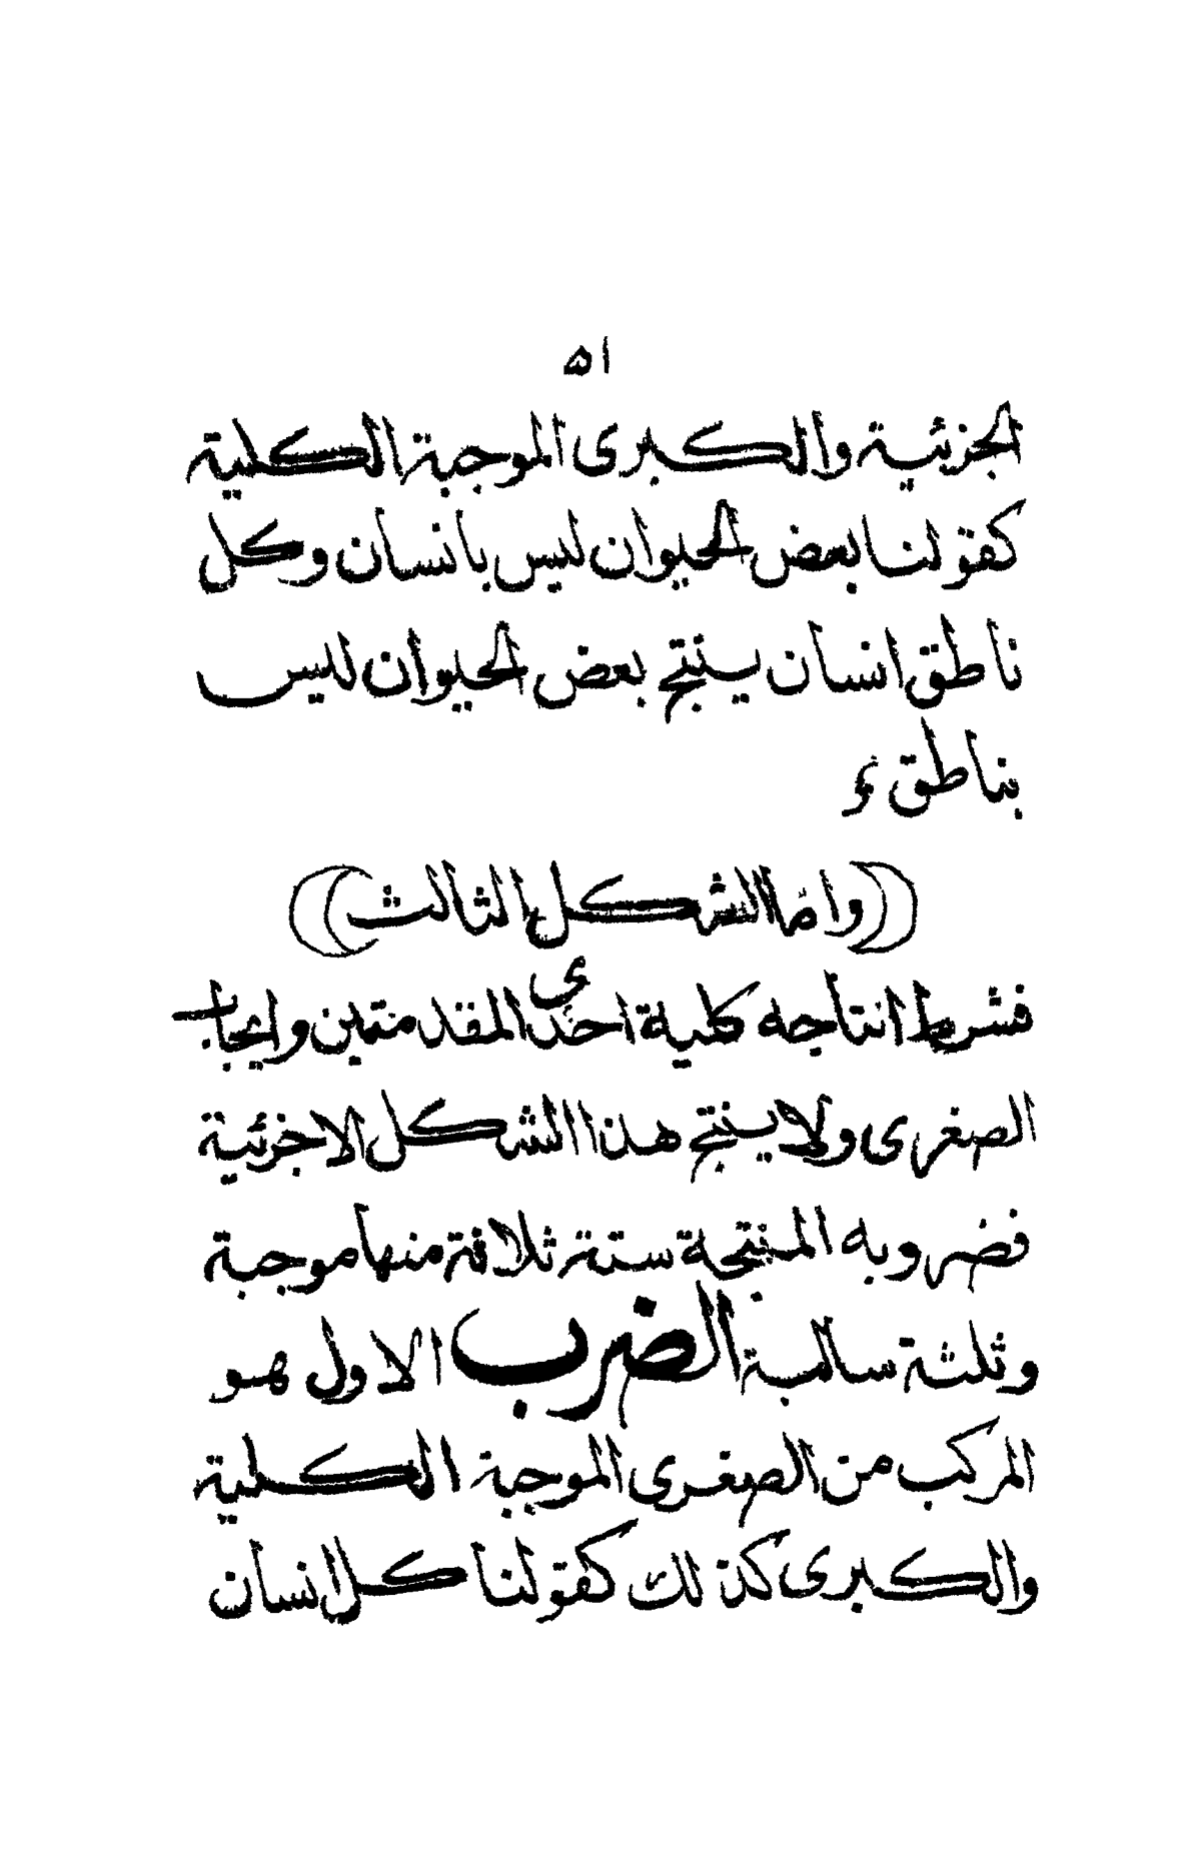 ٥١
الجزئية والكبرى الموجبة الكلية
كقولنا بعض الحيوان ليس بانسان وكل
ناطق انسان ينتج بعض الحيوان ليس
بناطق
((وامّا الشكل الثالث))
فشرط انتاجه كلية احدى المقدمتين وايجاب
الصغرى ولا ينتج هذا الشكل الا جزئية
فضروبه المنتجة ستة ثلاثة منها موجبة
وثلثة سالبة الضرب الاول هو
المركب من الصغرى الموجبة الكلية
والكبرى كذلك كقولنا كل انسان